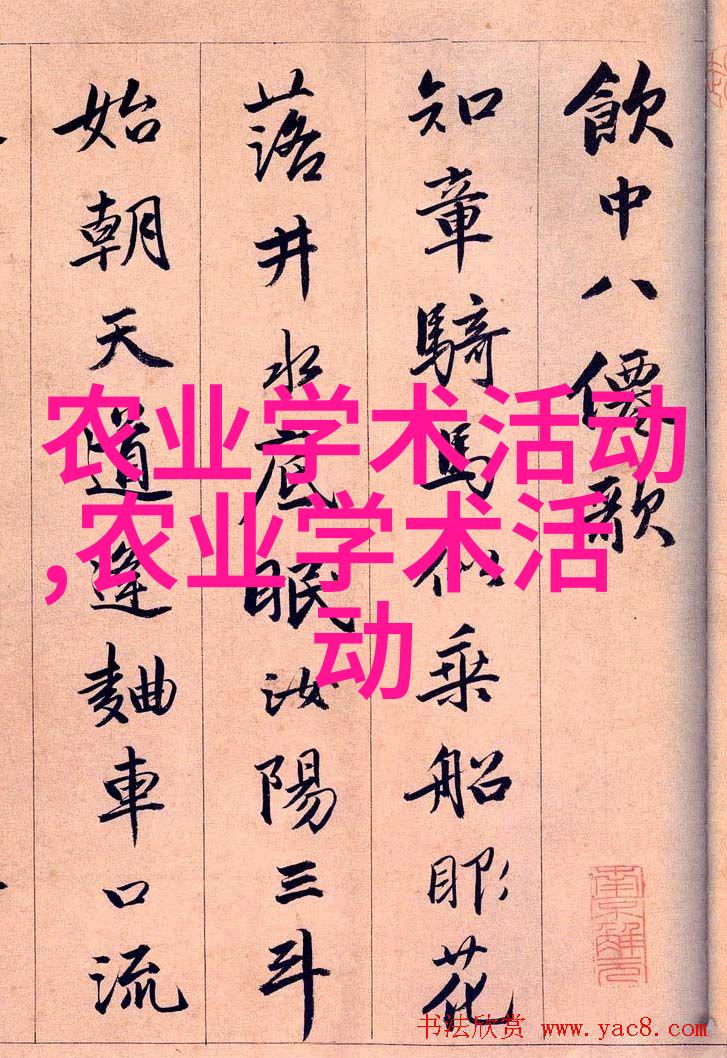 飲中八僊歌
知章騎馬似乘船眼花
落井水底眠汝陽三斗
始朝天道逢麯車口流
农业学术活动
,农业学术活
动
南京解元
书法欣赏 www.yac8.com